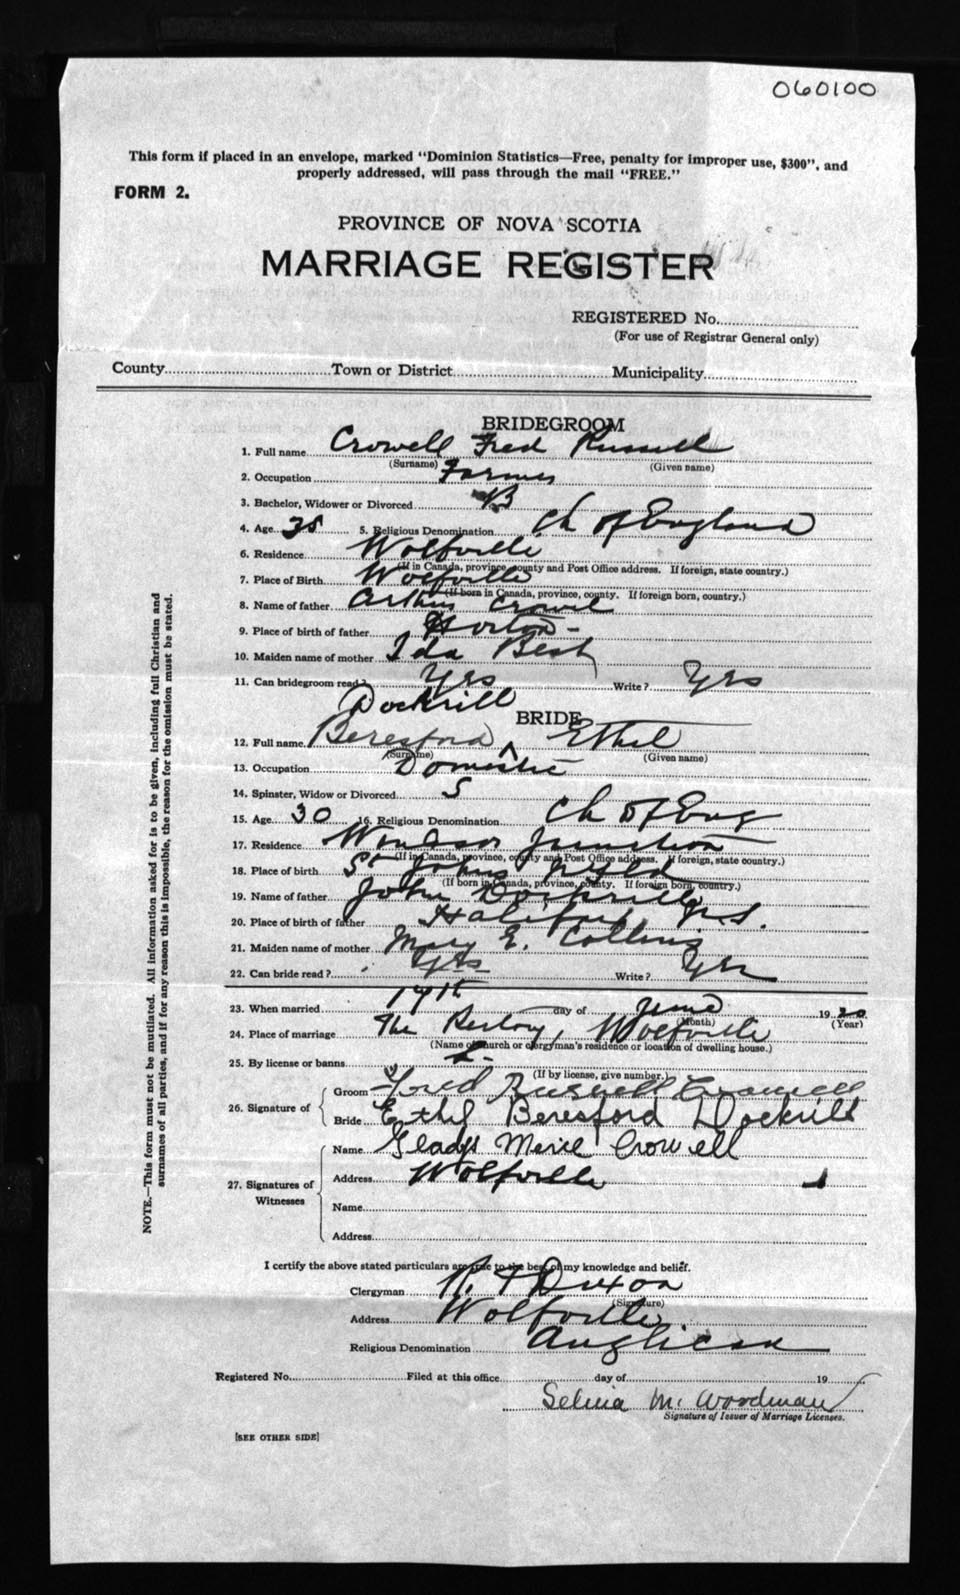 060100
This form if placed in an envelope, marked "Dominion Statistics—Free, penalty for improper use, $300", and
properly addressed, will pass through the mail "FREE."
FORM 2.
PROVINCE OF NOVA SCOTIA
MARRIAGE REGISTER
REGISTERED No.
(For use of Registrar General only)
County Town or District Municipality
BRIDEGROOM
1. Full name Crowell Fred Russell
(Surname) (Given name)
2. Occupation Farmer
3. Bachelor, Widower or Divorced B
4. Age 35 5. Religious Denomination Ch of England
6. Residence Wolfville
(If in Canada, province, county and Post Office address. If foreign, state country.)
7. Place of Birth Wolfville
(If born in Canada, province, county. If foreign born, country.)
8. Name of father Arthur Crowell
9. Place of birth of father Horton
10. Maiden name of mother Ida Best
11. Can bridegroom read? Yes Write? Yes
Dockrill
BRIDE
12. Full name Beresford ^ Ethel
(Surname) (Given name)
13. Occupation Domestic
14. Spinster, Widow or Divorced S
15. Age 30 16. Religious Denomination Ch of Eng
17. Residence Windsor Junction
(If in Canada, province, county and Post Office address. If foreign, state country.)
18. Place of birth St Johns Nfld
(If born in Canada, province, county. If foreign born, country.)
19. Name of father John Dockrill
20. Place of birth of father Halifax N.S.
21. Maiden name of mother Mary E. Collins
22. Can bride read? Yes Write? Yes
23. When married 14th day of June 1930
(Month) (Year)
24. Place of marriage The Rectory, Wolfville
(Name of church or clergyman's residence or location of dwelling house.)
25. By license or banns L.
(If by license, give number.)
26. Signature of Groom Fred Russell Crowell
Bride Ethel Beresford Dockrill
27. Signatures of Witnesses Name Gladys Merle Crowell
Address Wolfville
Name
Address
I certify the above stated particulars are true to the best of my knowledge and belief.
Clergyman R. F Dixon
(Signature)
Address Wolfville
Religious Denomination Anglican
Registered No. Filed at this office day of 19
Selina M. Woodman
Signature of Issuer of Marriage Licenses.
[SEE OTHER SIDE]
NOTE.—This form must not be mutilated. All information asked for is to be given, including full Christian and
surnames of all parties, and if for any reason this is impossible, the reason for the omission must be stated.